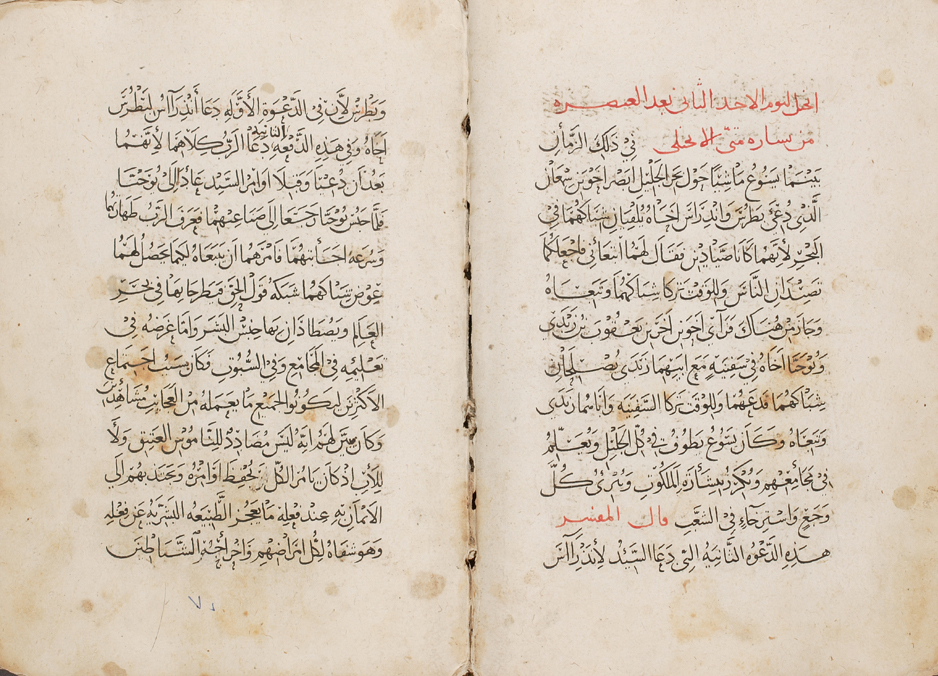 انجيل ليوم الاحد الثاني بعد العنصره
من بشاره متى الانجيلي في ذلك الزمان
بينما يسوع ماشيًا حول بحر الجليل ابصر اخوين سمعان
الَّذِي دُعِيَ بَطْرُسَ وَانْدِرَاسَ اخَاهُ يُلقِيَانِ شِبَاكَهُمَا فِي
البَحْرِ لأنَّهمَا كَانَا صَيَّادِيْنِ فَقَالَ لَهُمَا اتبَعَانِي فَاجعَلكُمَا
تَصِيْدَانِ النَّاسَ وَلِلوَقتِ تَرَكَا شِبَاكَهُمَا وَتَبِعَاهُ
وَجَازَ مِنْ هُنَاكَ فَرَأى اخَوَيْنِ اخَرَيْنِ يَعْقُوبَ بْنَ زَبَدِي
وَيُوحَنَّا اخَاهُ فِي سَفِينَةٍ مَعَ ابِيْهِمَا زَبَدِي يُصْلِحَانِ
شِبَاكَهُمَا فَدَعَاهُمَا وَلِلوَقتِ تَرَكَا السَّفِينَةَ وَابَاهُمَا زَبَدِي
وَتَبِعَاهُ وَكَانَ يَسُوْعُ يَطُوْفُ فِي كُلِّ الجَلِيْلِ وَيُعَلِّمُ
فِي مَجَامِعِهِم وَيُكَرِّزُ بِبِشَارَةِ المَلَكُوْتِ وَيُبْرِئُ كُلَّ
وَجَعٍ وَاسْتِرخَاءٍ فِي الشَّعْبِ قال المفسر
هَذِهِ الدَّعْوَهُ الثَّانِيَهُ الَّتِي دَعَا السَّيِّدُ لأنْدِرَآسَ
وَبَطْرُسَ لأَنَّ فِي الدَّعْوَةِ الأوَّلَهِ دَعَا أنْدِرَآسُ لِبَطْرُسَ
اخَاهُ وَفِي هَذِهِ الدَّفعَهِ الثانيه دَعَا الرَّبُّ كِلَاهُمَا لأنَّهُمَا
بَعْدَ أنْ دُعِيَا وَقَبِلَا اوَامِرَ السَّيِّدِ عَادَا إلَى يُوحَنَّا
فَلَمَّا حُبِسَ يُوْحَنَّا رَجَعَا إلَى صِنَاعَتِهِمَا فَعَرَفَ الرَّبُّ طَهَارَتَهُمَا
وَسُرعَةَ اجَابَتِهُمَا فَامَرَهُمَا انْ يَتبَعَاهُ لِكَيمَا يَحصُلَ لَهُمَا
عِوَضَ شِبَاكِهمَا شَبَكَةُ قَوْلِ الحَقِّ فَيَطرَحَانِهَا فِي بَحْرِ
العَالَمِ وَيَصْطَادَانِ بِهَا جِنْسَ البَشَرِ وَامَّا غَرَضُهُ فِي
تَعْلِيْمِهِ فِي المَجَامِعِ وَفِي السُّبُوْتِ فَكَانَ بِسَبَبِ اجْتِمَاعِ
الأكْثَرِيْنَ لِيَكُونُوا لِجَمِيْعِ مَا يَعمَلُهُ مِنَ العَجَايِبِ مُشَاهِدِيْنَ
وَكَانَ يُبَيِّنُ لَهُمْ انَّهُ لَيْسَ مُضَادِدًا لِلنَّامُوْسِ العَتِيْقِ وَلَا
لِلأبِ اذ كَانَ يَامُرُ الكُلَّ بِحِفْظِ اوَامِرِهِ وَيَجْذِبُهُم إلَى
الايْمَانِ بِهِ عِنْدَ فِعْلِهِ مَا يَعْجَزُ الطَّبِيْعَهُ البَشَرِيَّهُ عَنْ فِعْلِهِ
وَهُوَ شِفَاهُ لِكُلِّ امْرَاضِهِم وَاخْرَاجُهُ الشَّيَاطِيْنَ